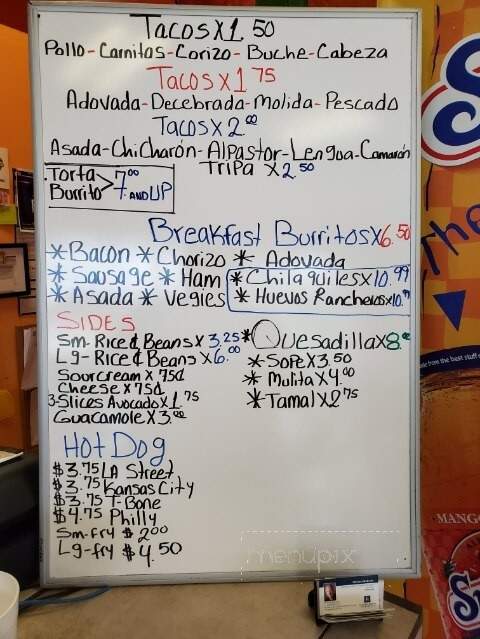 Tacos x 1 50
Pollo-Carnitas-Corizo-Buche-Cabeza
Tacos x 1 75
Adovada-Decebrada-Molida-Pescado
Tacos x 2 00
Asada-ChiCharón-AlPastor-Lengua-Camarón
Tripa x 2 50
Torta
Burrito > 7.00 AND UP
Breakfast Burritos x 6.50
* Bacon * Chorizo * Adovada
* Sausage * Ham * Chilaquiles x 10.99
* Asada * Vegies * Huevos Rancheros x 10.99
SIDES
Sm-Rice & Beans x 3.25
Lg-Rice & Beans x 6.00
Sourcream x 75¢
Cheese x 75¢
3-Slices Avocado x 1 75
Guacamole x 3.00
* Quesadilla x 8.00
* Sope x 3.50
* Mulita x 4.00
* Tamal x 2 75
Hot Dog
$3.75 LA Street
$3.75 Kansas City
$3.75 T-Bone
$4.75 Philly
Sm-fry $2.00
Lg-fry $4.50
menupix
the
from the best stuff
MANGO